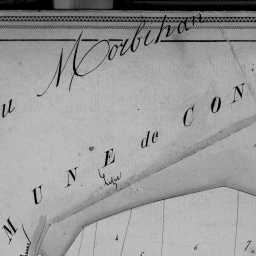 u Morbihan
MUNE de CON
4
5
6
7